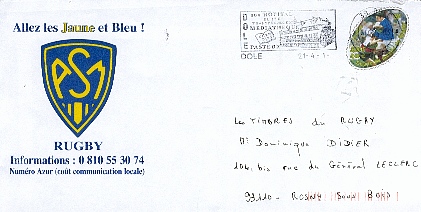 Allez les Jaune et Bleu !
ASM
RUGBY
Informations : 0 810 55 30 74
Numéro Azur (coût communication locale)
DOLE
PASTEUR
DOLE
Les TIMBRES du RUGBY
Mr Dominique DIDIER
104 bis rue du Général LECLERC
93110 - ROSNY SOUS BOIS